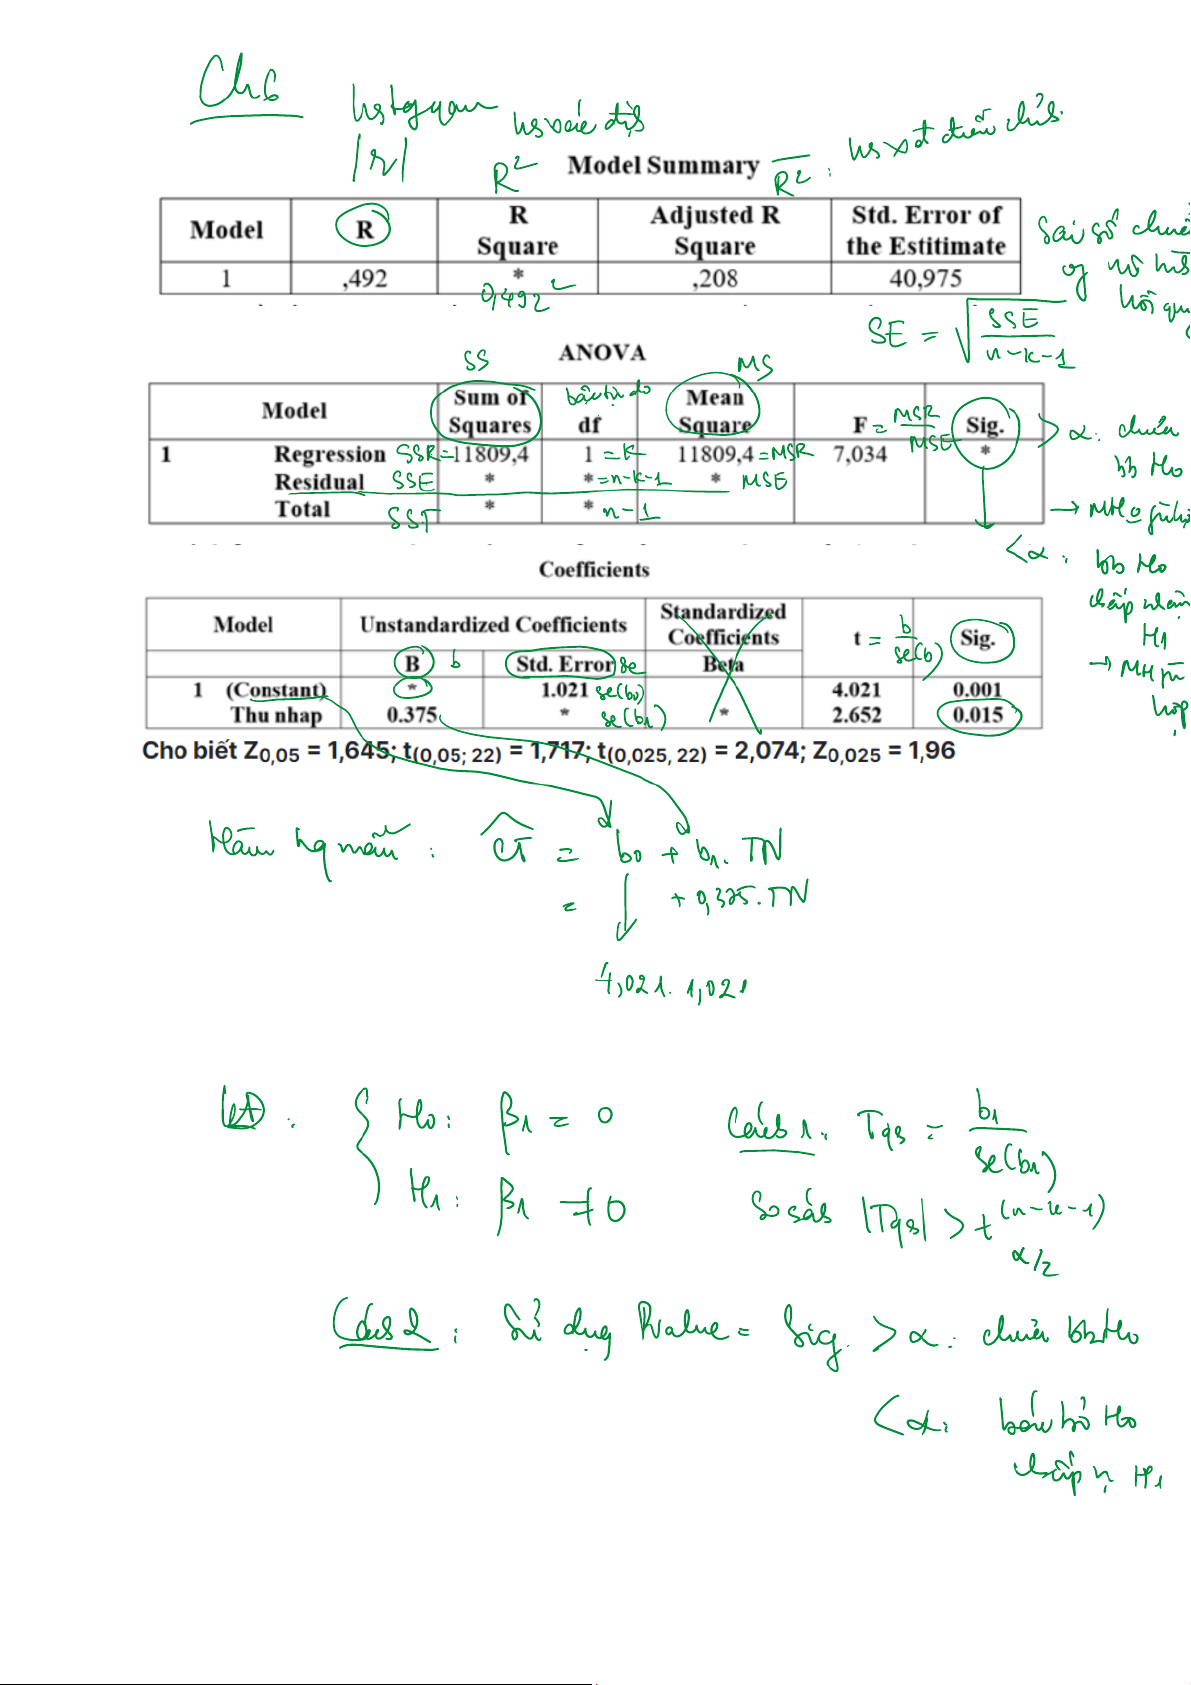 Ch6
hs tg quan
hs xác định
hs xđ điều chỉnh
|r| R² Model Summary R̅²:
Model R R Square Adjusted R Square Std. Error of the Estitimate
1 ,492 * ,208 40,975
0,492²
Sai số chuẩn
of mô hình
hồi quy
SE = √(SSE/(n-k-1))
SS ANOVA MS
Model Sum of Squares bậc tự do df Mean Square F = MSR/MSE Sig.
1 Regression SSR = 11809,4 1 = k 11809,4 = MSR 7,034 *
Residual SSE * * = n-k-1 * MSE
Total SST * * n-1
> α: chưa
bb Ho
→ MH o phù hợp
< α: bb Ho
chấp nhận
H1
→ MH phù
hợp
Coefficients
Model Unstandardized Coefficients Standardized Coefficients t = b/se(b) Sig.
B b Std. Error se Beta
1 (Constant) * 1.021 se(b0) 4.021 0.001
Thu nhap 0.375 * se(b1) * 2.652 0.015
Cho biết Z0,05 = 1,645; t(0,05; 22) = 1,717; t(0,025, 22) = 2,074; Z0,025 = 1,96
Hàm hq mẫu: CT̂ = b0 + b1. TN
= + 0,375. TN
4,021. 1,021
KĐ: Ho: β1 = 0 Cách 1: Tqs = b1/se(b1)
H1: β1 ≠ 0 So sánh |Tqs| > t(n-k-1) α/2
Cách 2: Sử dụng Pvalue = Sig. > α: chưa bb Ho
< α: bác bỏ Ho
chấp n H1